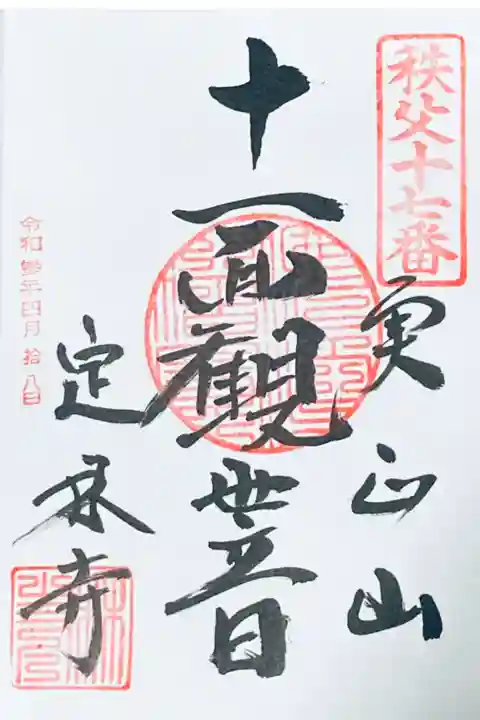 秩父十七番
実正山
十一面觀世音
定林寺
令和參年四月拾八日